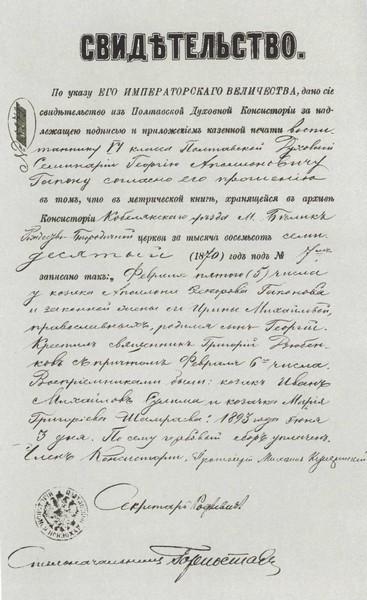 СВИДѢТЕЛЬСТВО.
По указу ЕГО ИМПЕРАТОРСКАГО ВЕЛИЧЕСТВА, дано сіе
свидѣтельство изъ Полтавской Духовной Консисторіи за над-
лежащею подписью и приложеніемъ казенной печати воспи-
таннику VI класса Полтавской Духовной
Семинаріи Георгію Аполлоновичу
Гапону согласно его прошенію
въ томъ, что въ метрической книгѣ, хранящейся въ архивѣ
Консисторіи Кобелякскаго уѣзда М. Бѣлик
Рождество Богородичной церкви за тысяча восемьсотъ семи
десятый (1870) годъ подъ №
записано такъ: Февраля пятаго (5) числа
у козака Аполлона Гапонова
и законной жены его Ирины Михайловой,
православныхъ, родился сынъ Георгій.
Крестилъ священникъ Григорій
съ причтомъ Февраля 6го числа.
Воспріемниками были: козакъ Иванъ
Михайловъ и козачка Марія
Григоріева 1893 года Іюня
3 дня. По сему гербовый сборъ уплаченъ.
Членъ Консисторіи, Протоіерей Михаилъ
Секретарь
Столоначальникъ